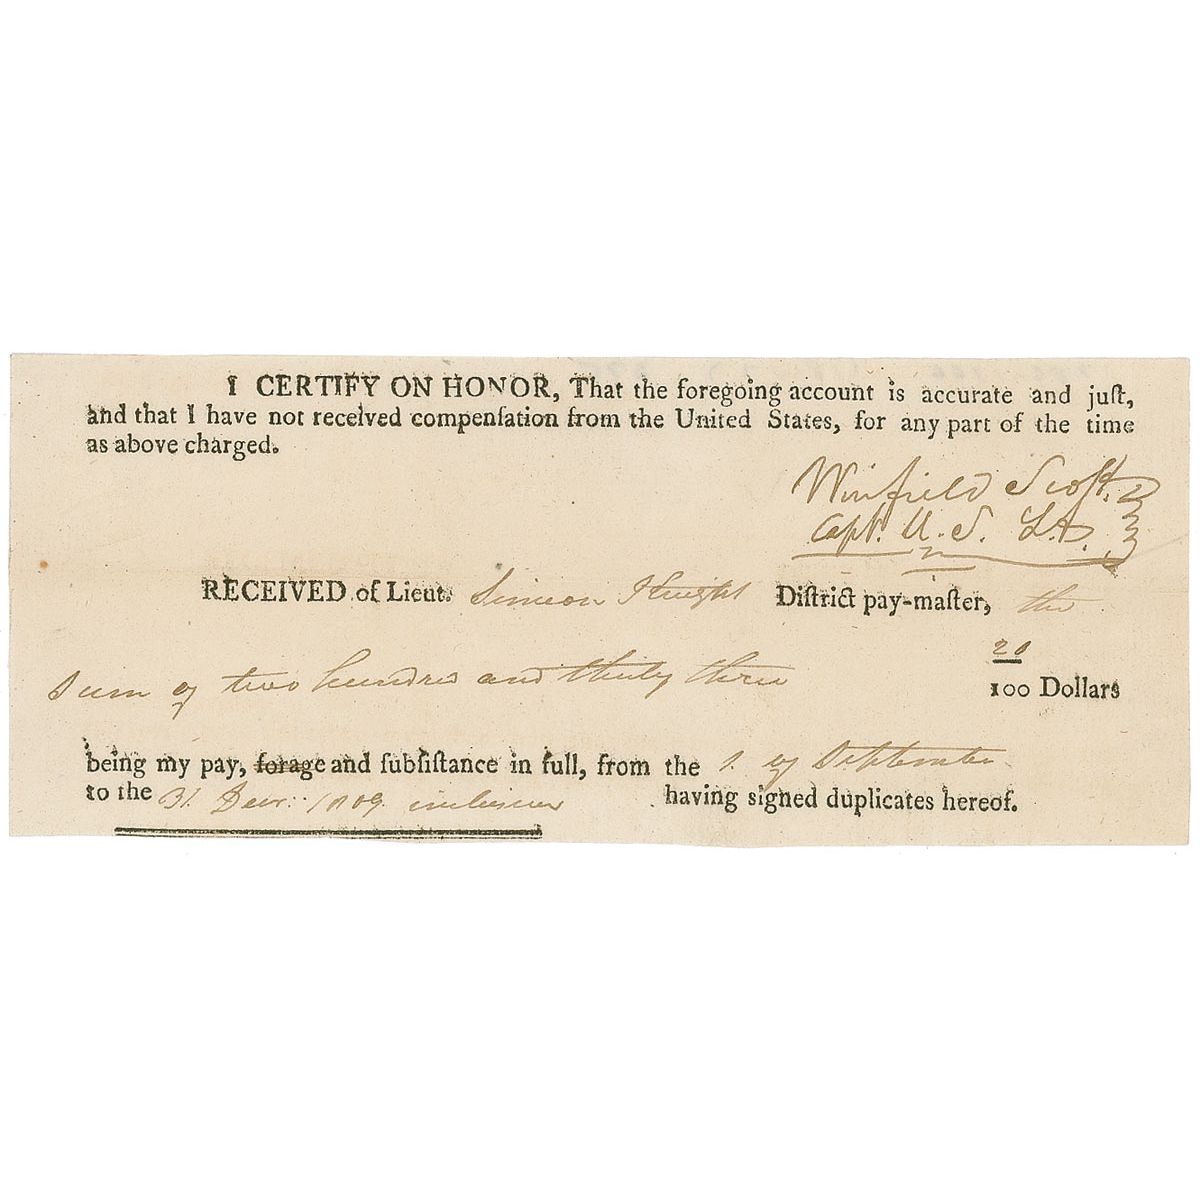 I CERTIFY ON HONOR, That the foregoing account is accurate and juſt,
and that I have not received compenſation from the United States, for any part of the time
as above charged.
Winfield Scott.
Capt. U. S. L. A.
RECEIVED of Lieut. Simeon Knight Diſtrict pay-maſter, the
sum of two hundred and thirty three 20/100 Dollars
being my pay, forage and ſubſiſtance in full, from the 1. of September
to the 31 Decr. 1809 inclusive having signed duplicates hereof.